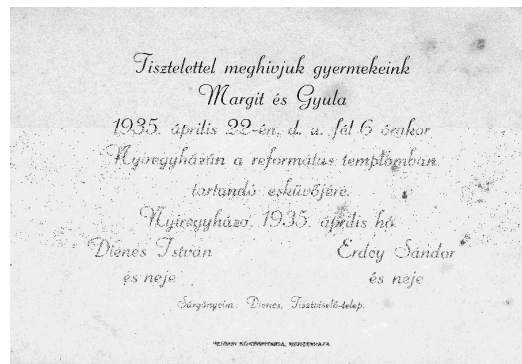 Tisztelettel meghivjuk gyermekeink
Margit és Gyula
1935. április 22-én, d. u. fél 6 órakor
Nyiregyházán a református templomban
tartandó esküvőjére.
Nyiregyháza, 1935. április hó
Dienes István
Erdey Sándor
és neje
és neje
Sürgönyeim: Dienes, Tisztviselő-telep.